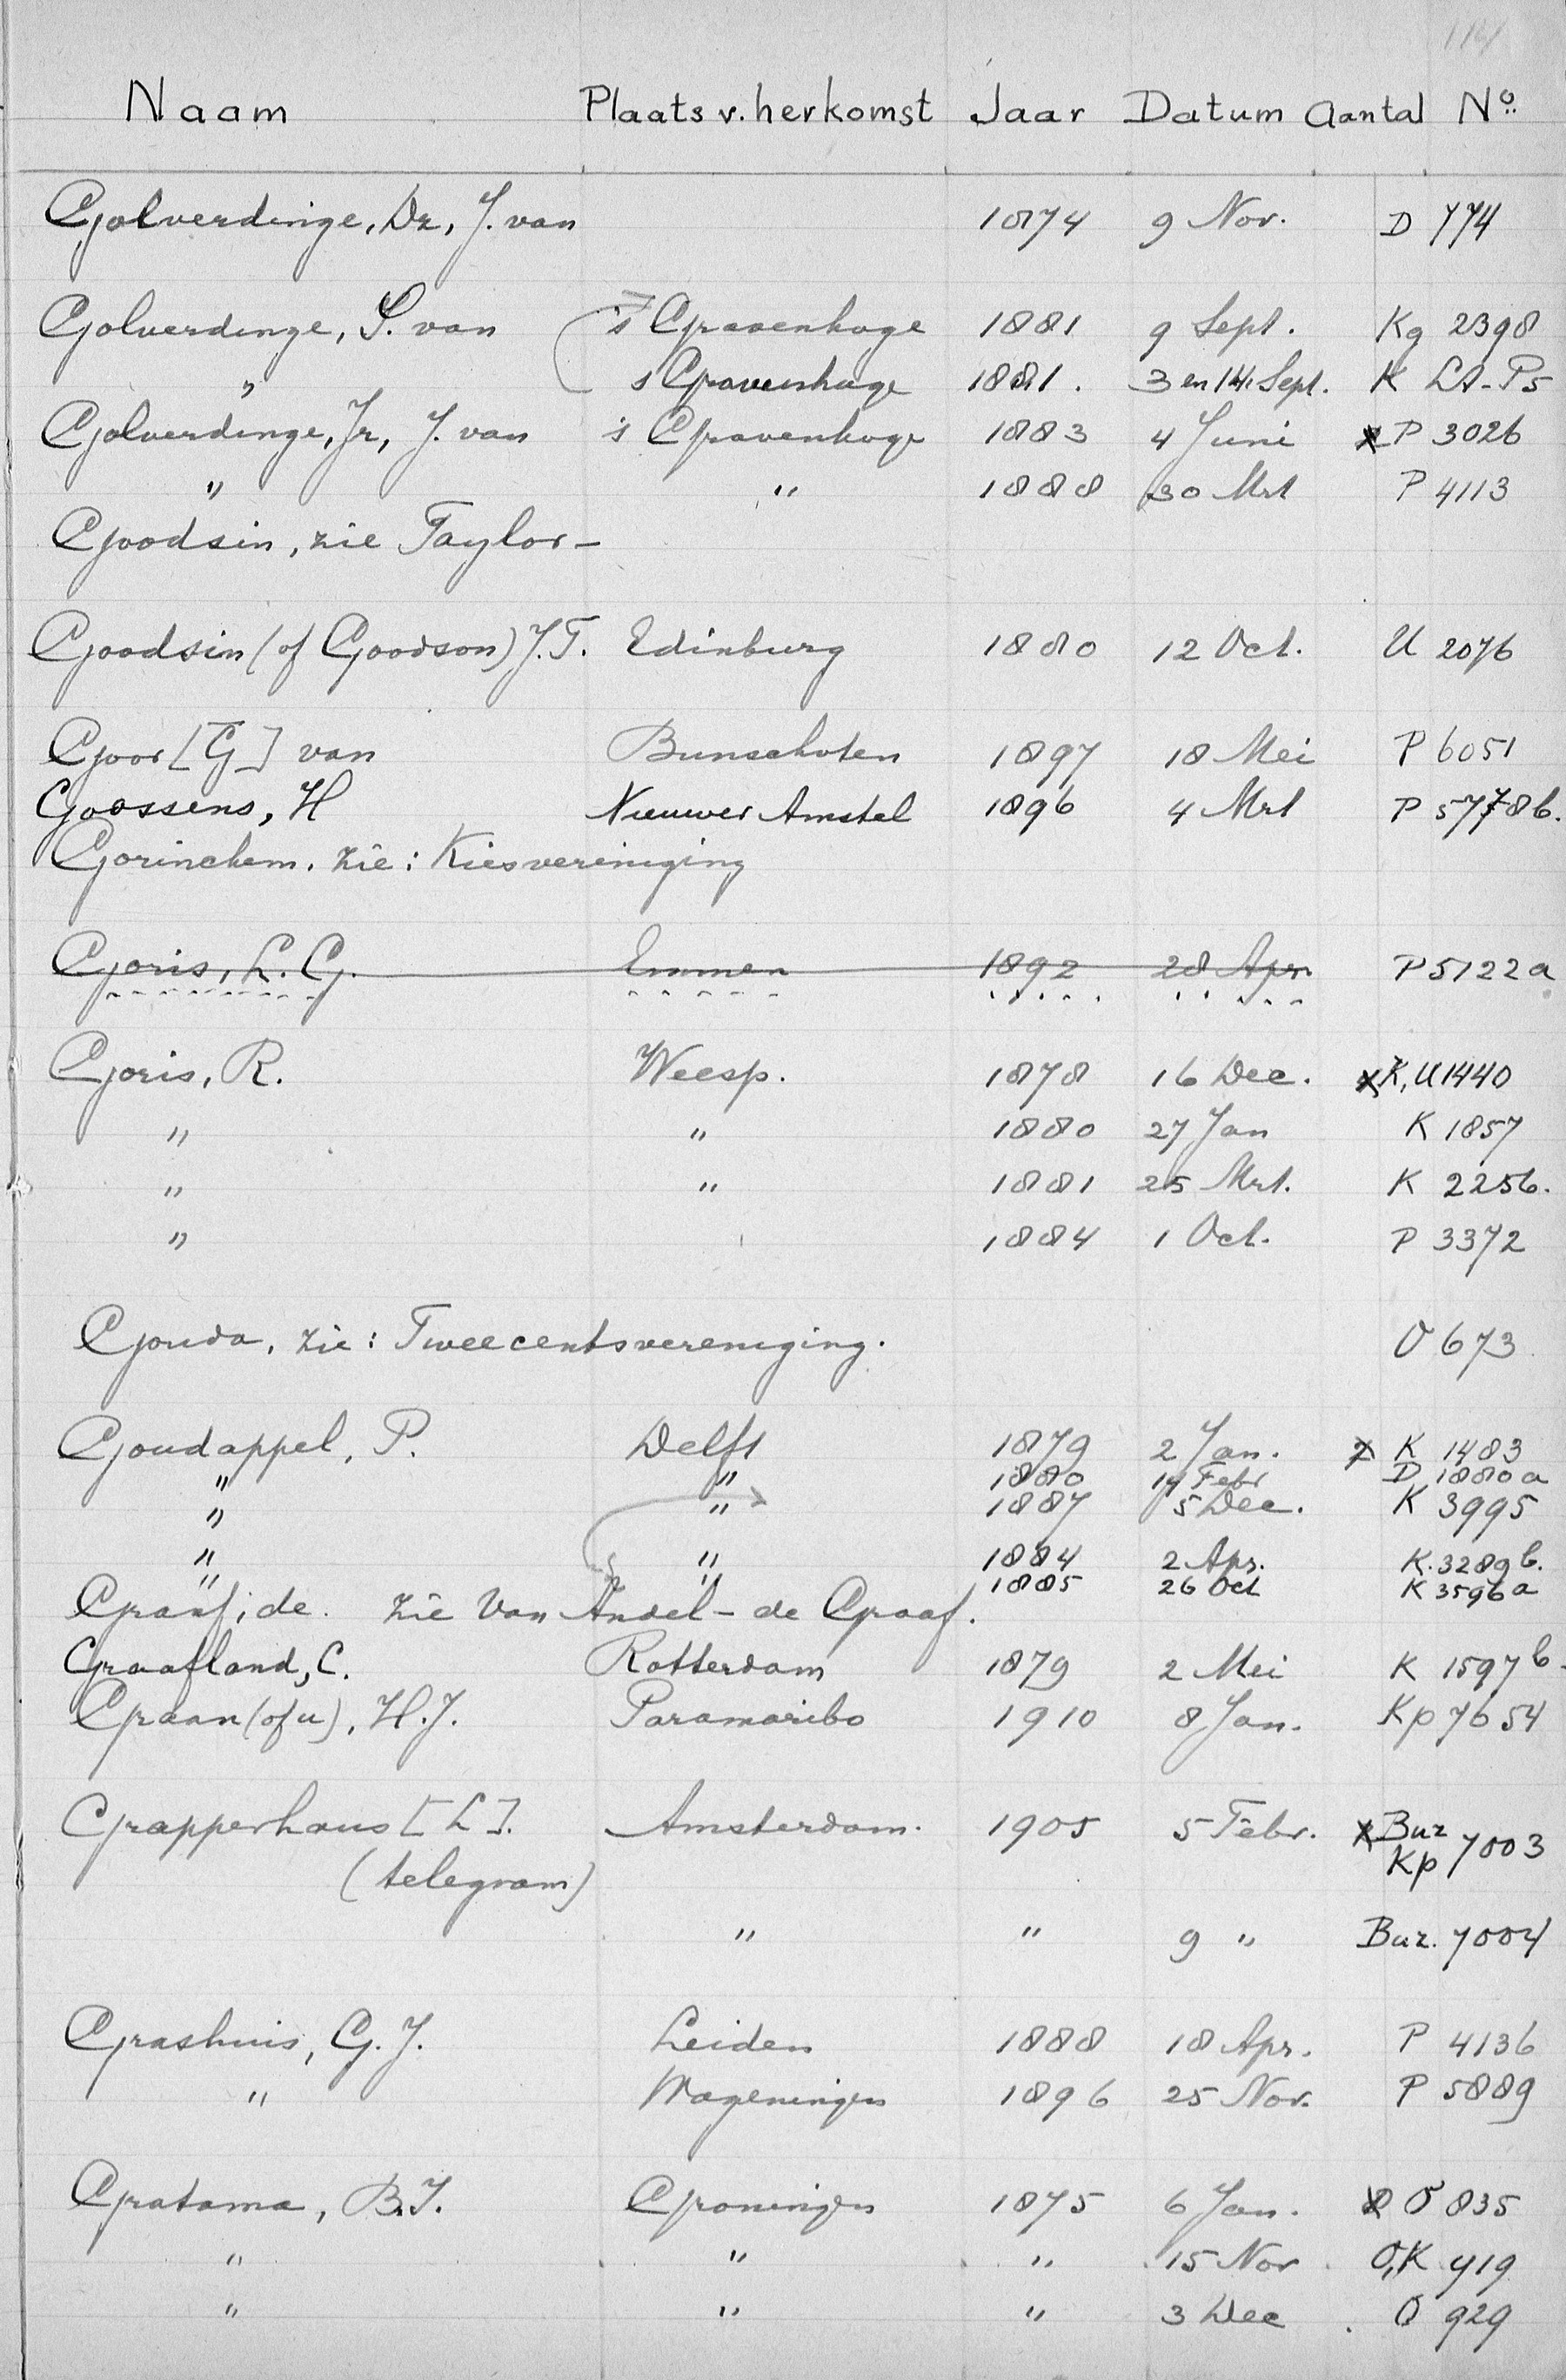 Naam Plaats v. herkomst Jaar Datum Aantal No.
Golverdinge, Dr, J. van 1874 9 Nov. D 774
Golverdinge, S. van 's Gravenhage 1881 9 Sept. Kg 2398
" s Gravenhage 1881. 3 en 14 Sept. K Ls-Ps
Golverdinge, Jr, J. van 's Gravenhage 1883 4 Juni P 3026
" " 1888 30 Mrt P 4113
Goodsin, zie Taylor-
Goodsin (of Goodson) J.T. Edinburg 1880 12 Oct. U 2076
Goor [G] van Bunschoten 1897 18 Mei P 6051
Goossens, H Nieuwer Amstel 1896 4 Mrt P 5778b.
Gorinchem. zie: Kiesvereniging
Goris, L. G. Emmen 1892 28 Apr. P 5122a
Goris, R. Weesp. 1878 16 Dec. x K, U 1440
" " 1880 27 Jan K 1857
" " 1881 25 Mrt. K 2256.
" 1884 1 Oct. P 3372
Gouda, zie: Tweecentsvereniging. O 673
Goudappel, P. Delft 1879 2 Jan. x K 1483
" " 1880 14 Febr D 1880a
" " 1887 5 Dec. K 3995
" " 1884 2 Apr. K. 3289b.
" " 1885 26 Oct K 3596a
Graaf, de. zie Van Andel - de Graaf.
Graafland, C. Rotterdam 1879 2 Mei K 1597b.
Graan (of u), H.J. Paramaribo 1910 8 Jan. Kp 7654
Grapperhaus [L]. Amsterdam. 1905 5 Febr. x Buz Kp 7003
(telegram)
" " 9 " Buz. 7004
Grashuis, G. J. Leiden 1888 18 Apr. P 4136
" Wageningen 1896 25 Nov. P 5889
Gratama, B.J. Groningen 1875 6 Jan. O 835
" " " 15 Nov O,K 919
" " " 3 Dec O 929